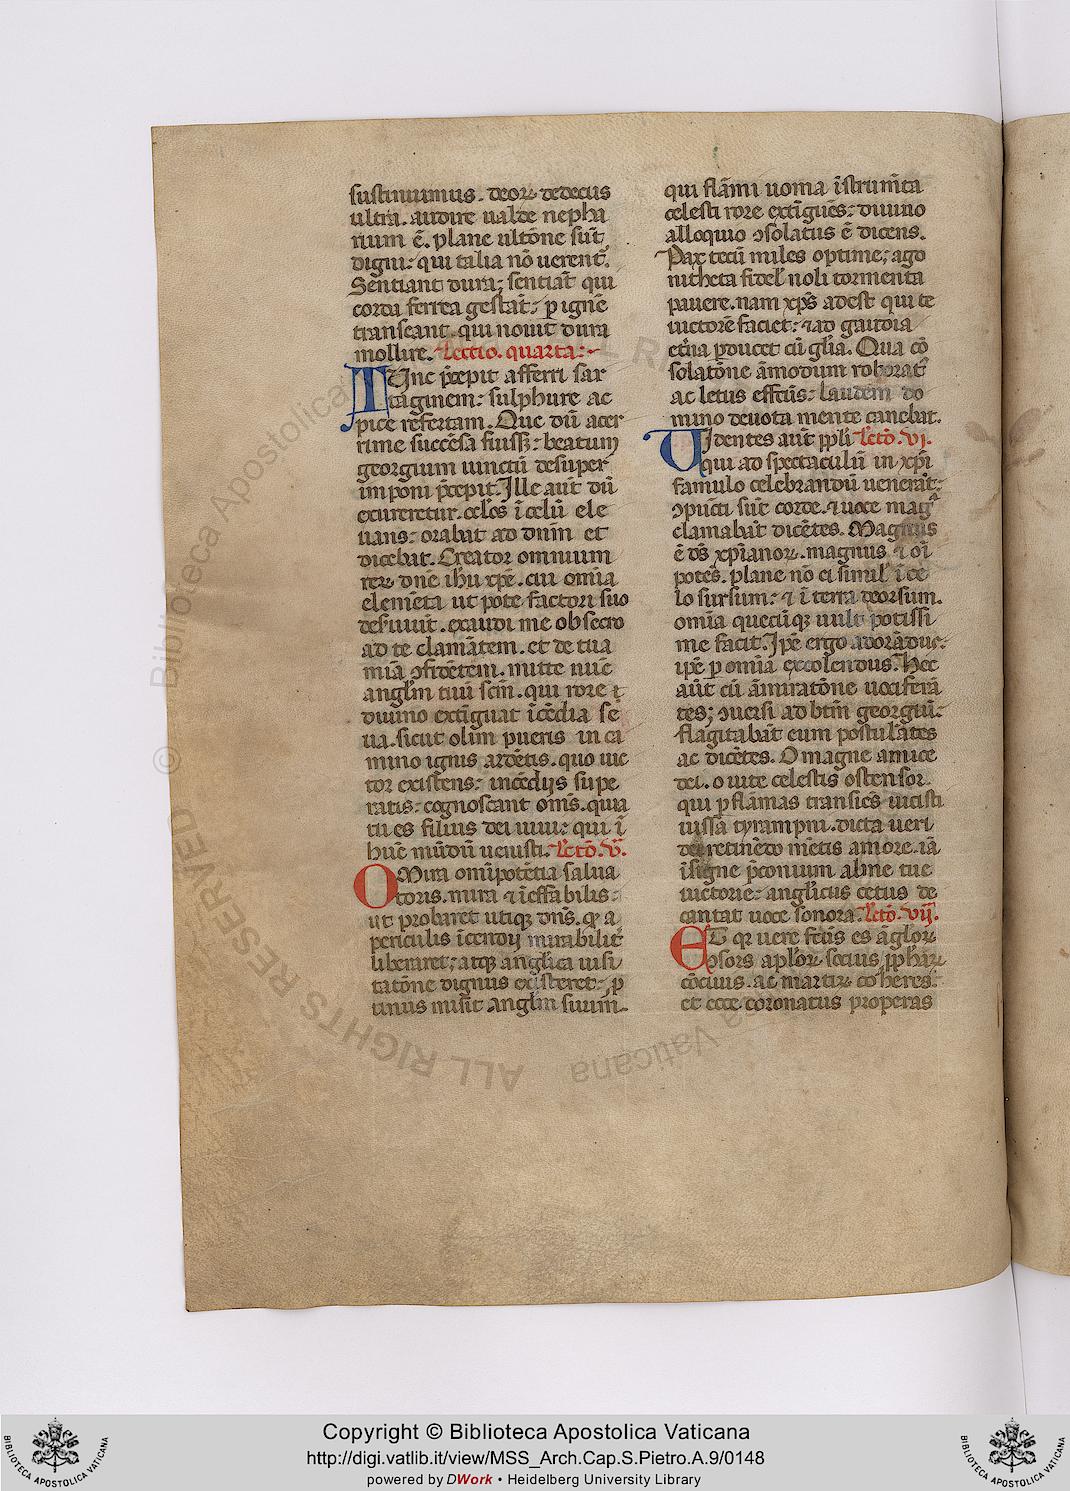 sustinuimus. deoꝝ dedecus
ultra. audire ualde nepha
rium ē. plane ultōne sūt
digni: qui talia nō uerent̄.
Sentiant dura; sentiāt qui
corda ferrea gestāt: ꝑ ignē
transeant. qui nouit dura
mollire. Lectio. quarta:~
TUnc p̄cepit afferri sar
taginem: sulphure ac
pice refertam. Que dū acer
rime succēsa fuissꝫ: beatum
georgium iunctū desuper
imponi p̄cepit. Ille aūt dū
exureretur. cel̄os ī celū ele
uans: orabat ad dnm̄ et
dicebat. Creator omnium
reꝝ dn̄e ihū xp̄e. cui om̄ia
elemēta ut pote factori suo
des̄uiūt. exaudi me obsecro
ad te clamātem. et de tua
mīa ꝯfidētem. mitte nūc
angl̄m tuū scm̄. qui rore
diuino extīguat īcēdia se
ua. sicut olim pueris in ca
mino ignis ardētis. quo uic
tor existens: incēdijs supe
ratis: cognoscant om̄s. quia
tu es filius dei uiui: qui ī
hūc mūdū uenisti. Lectō. v̄.
O Mira omīpotētia salua
toris. mira ⁊ īeffabilis:
ut probaret utiqꝫ dn̄s. qꝛ a
periculis īcendij mirabilit̄
liberaret; atqꝫ anglica uisi
tatōne dignus existeret: ꝓ
tinus misit angl̄m suum̄.
qui flāmi uoma īstrumēta
celesti rore extīguēs: diuino
alloquio ꝯsolatus ē dicens.
Pax tecū miles optime; ago
nitheta fidel̄ noli tormenta
pauere. nam xp̄s adest qui te
uictorē faciet: ⁊ ad gaudia
et̄na ꝑducet cū gl̄ia. Qua cō
solatōne āmodum roborat̄
ac letus effcūs: laudem do
mino deuota mente canebat.
UIdentes aūt pp̄li Lectō. vi.
qui ad spectaculū in xp̄i
famulo celebrandū uenerāt:
ꝯpūcti sūt corde. ⁊ uoce maḡ
clamabāt dicētes. Magnus
ē ds̄ xp̄ianoꝝ. magnus ⁊ oī
potēs. plane nō ē simil̄ ī ce
lo sursum: ⁊ ī terra deorsum.
om̄ia quecūqꝫ uult potissi
me facit. Ip̄e ergo adorādus:
ip̄e ꝑ om̄ia excolendus. Hec
aūt cū āmiratōne uociferā
tes; ꝯuersi ad btm̄ georgiū:
flagitabāt eum postulātes
ac dicētes. O magne amice
dei. o uite celestis ostensor.
qui ꝑ flāmas transiēs uicisti
iussa tyrampni. dicta ueri
dei retinēdo mētis amore. iā
īsigne p̄conium alme tue
uictorie: anglicus cetus de
cantat uoce sonora. Lectō. vij.
ET qꝛ uere fcūs es āgl̄oꝝ
ꝯsors apl̄oꝝ socius pp̄haꝝ
cōciuis. ac martiꝝ coheres.
et ecce coronatus properas
Copyright © Biblioteca Apostolica Vaticana
http://digi.vatlib.it/view/MSS_Arch.Cap.S.Pietro.A.9/0148
powered by DWork • Heidelberg University Library
BIBLIOTECA APOSTOLICA VATICANA
BIBLIOTECA APOSTOLICA VATICANA
© Biblioteca Apostolica Vaticana
ALL RIGHTS RESERVED